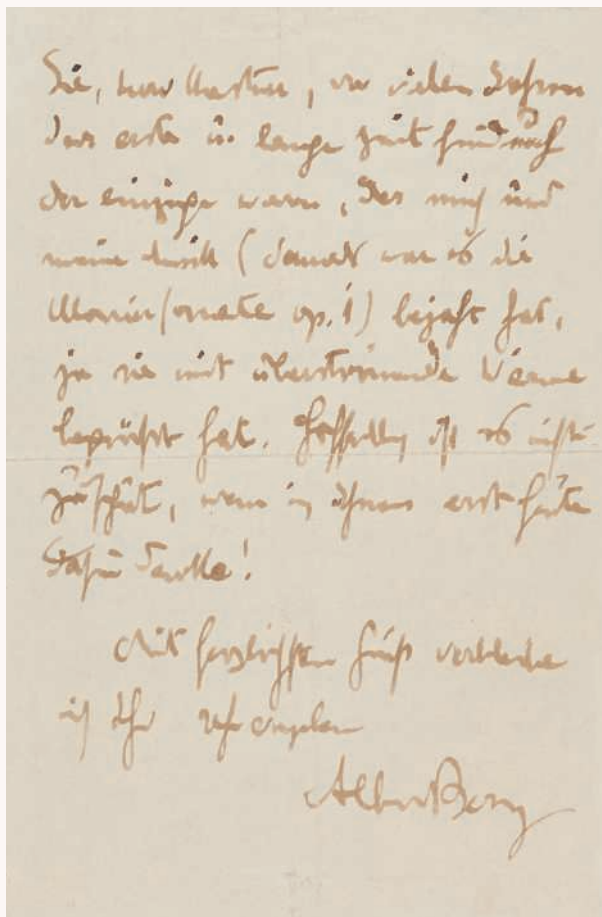 Sie, Herr, vor vielen Jahren
der erste u. lange Zeit hindurch
der einzige waren, der mich und
meine Musik (damals war es die
Klaviersonate op. 1) bejaht hat,
ja sie mit überströmender Wärme
begrüßt hat. Hoffentlich ist es nicht
zu spät, wenn ich Ihnen erst heute
dafür danke!
Mit herzlichstem Gruß verbleibe
ich Ihr
Alban Berg